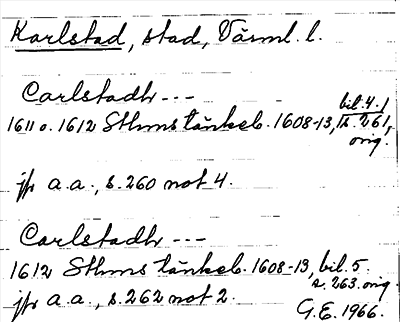 Karlstad, stad, Värml. l.
Carlstadh ---
bil. 4.1
1611 o. 1612 Sthms tänkeb. 1608-13, s. 261,
orig.
jfr a.a., s. 260 not 4.
Carlstadh ---
1612 Sthms tänkeb. 1608-13, bil. 5.
s. 263. orig.
jfr a.a., s. 262 not 2.
G.E. 1966.